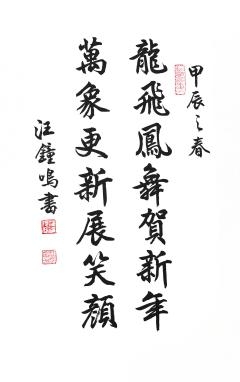 甲辰之春
龍飛鳳舞賀新年
萬象更新展笑顏
汪鐘鳴書